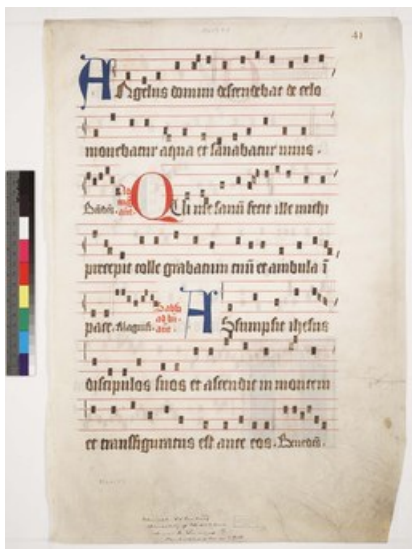 41
Angelus domini descendebat de celo
mouebatur aqua et sanabatur unus.
Qui me sanū fecit ille michi
precepit tolle grabatum tuū et ambula ī
pace. Magnifi. Assumpsit ihesus
discipulos suos et ascendit in montem
et transfiguratus est ante eos. Benedcī.